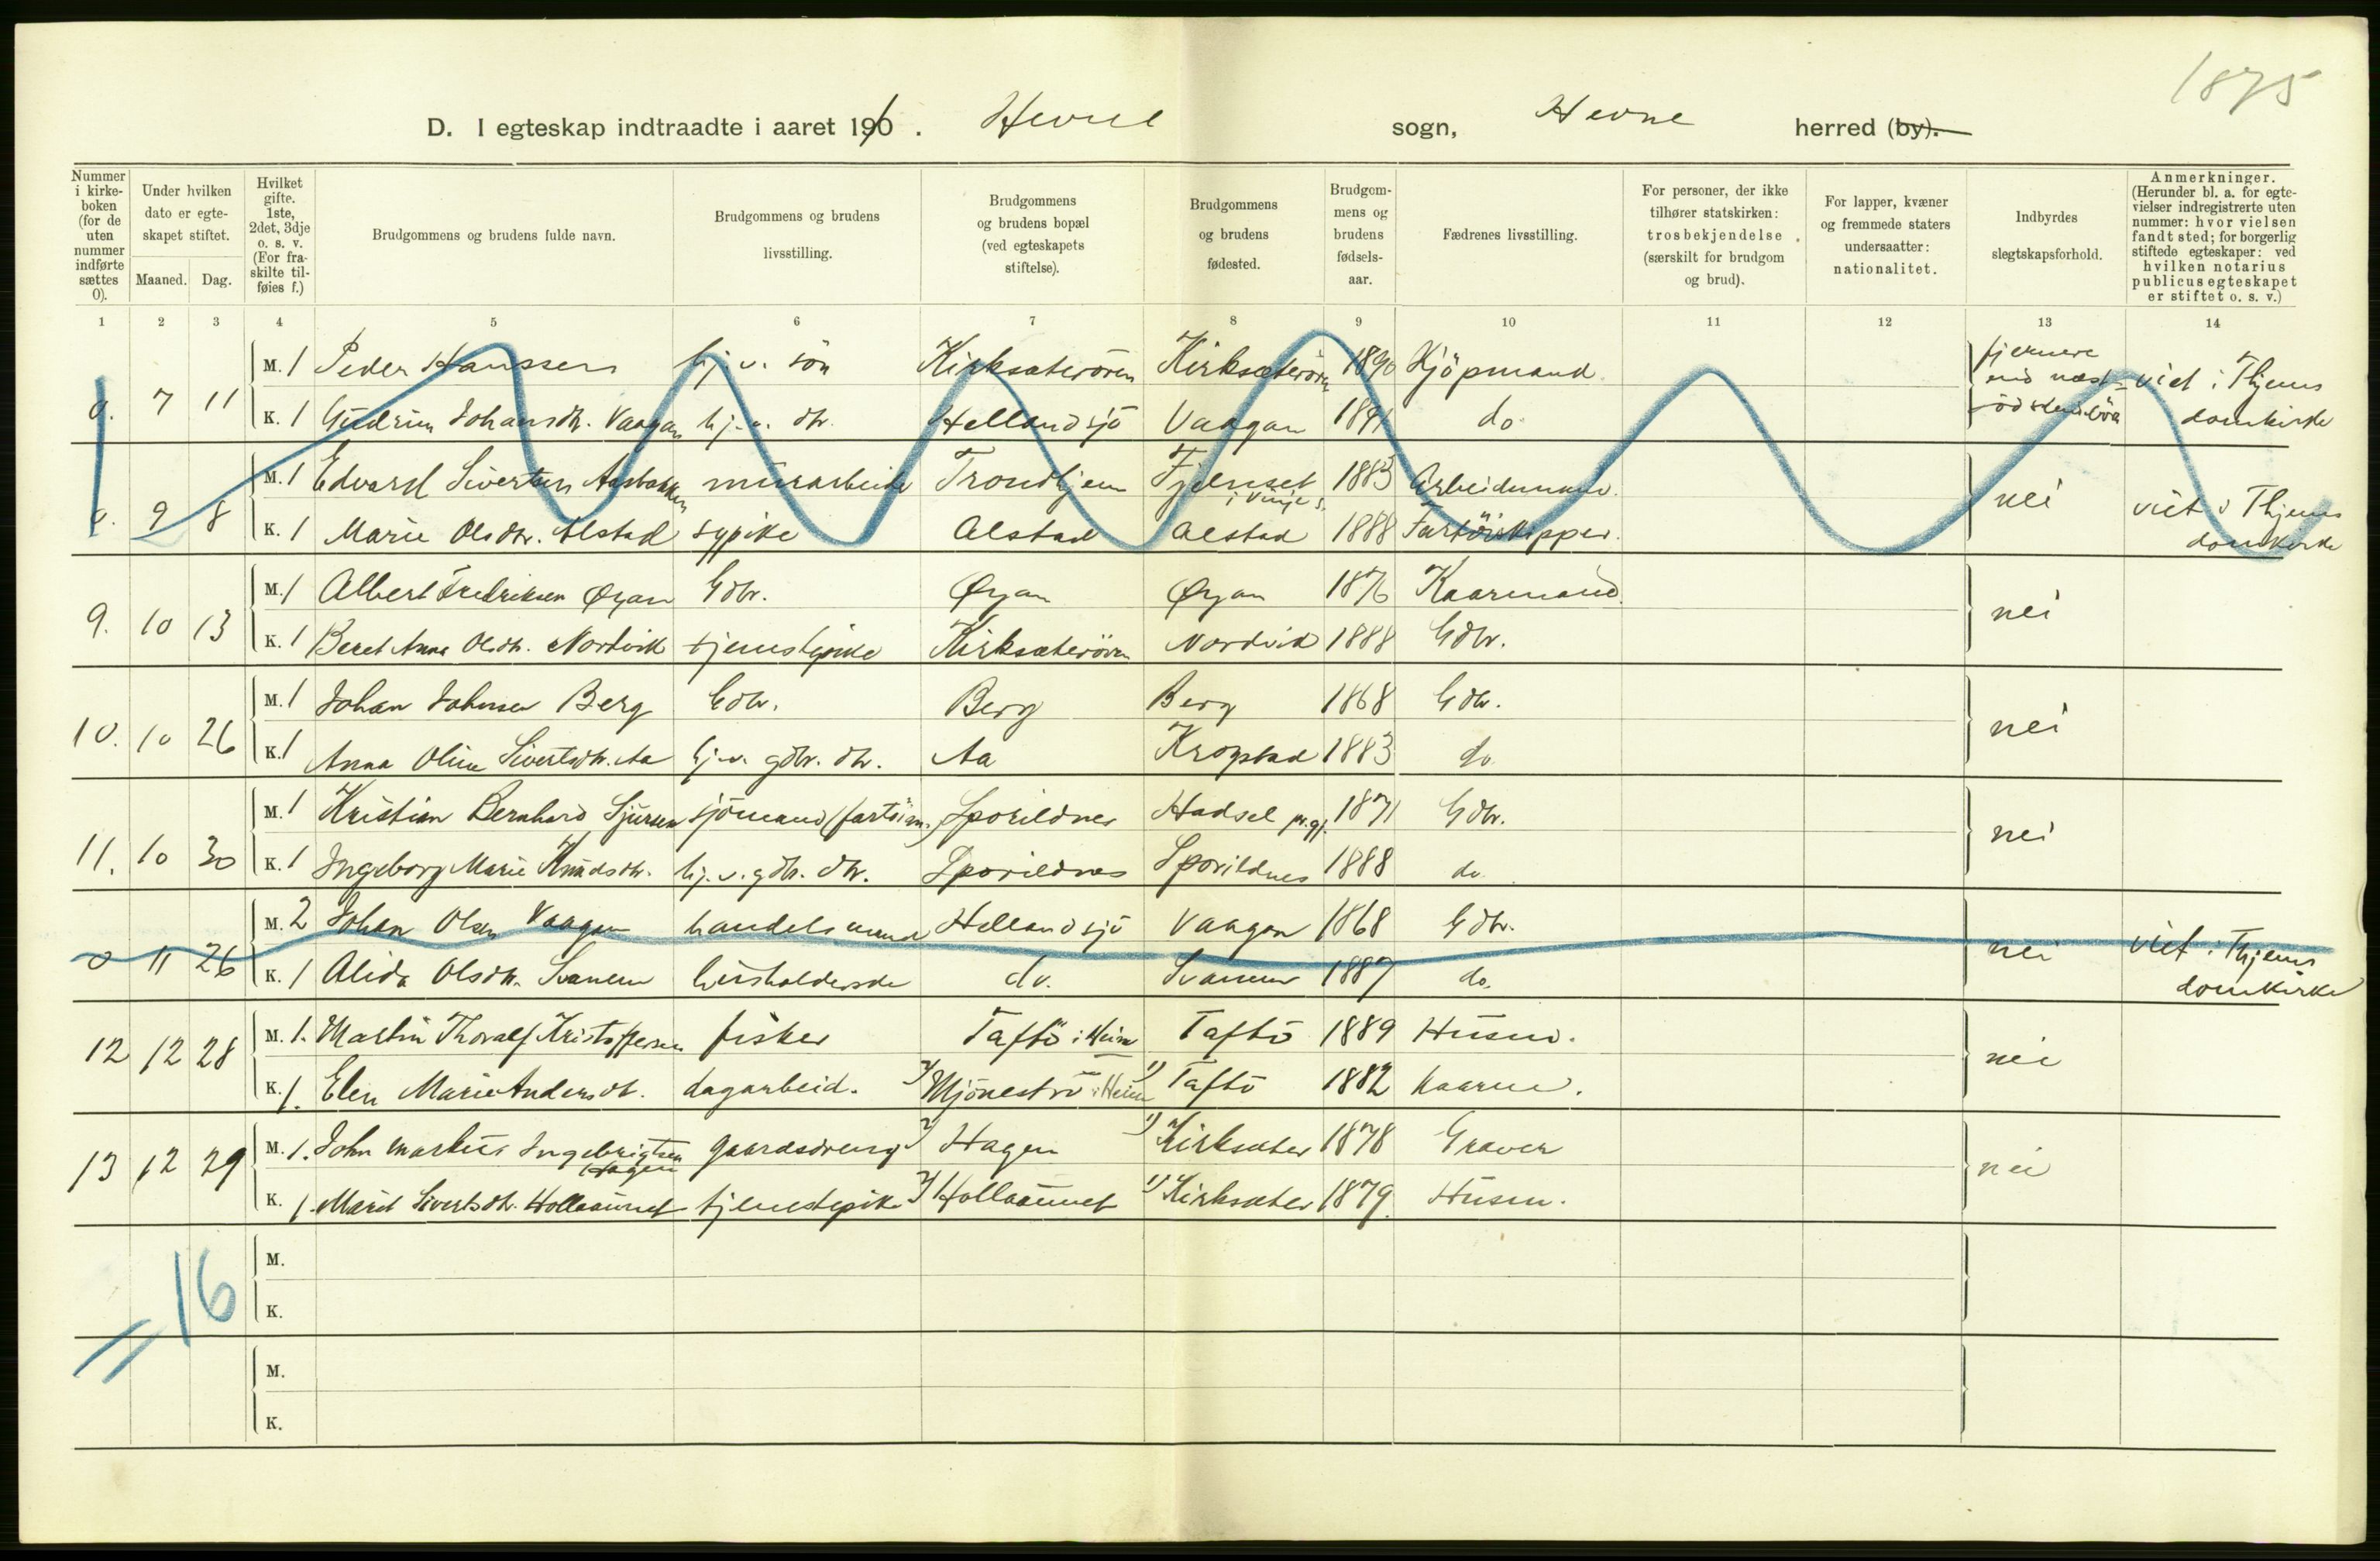 1875
D. I egteskap indtraadte i aaret 190 . Hevne sogn, Hevne herred (by).
Nummer i kirke-boken (for de uten nummer indførte sættes 0).
Under hvilken dato er egte-skapet stiftet.
Maaned. Dag.
Hvilket gifte. 1ste, 2det, 3dje o. s. v. (For fra-skilte til-føies f.)
Brudgommens og brudens fulde navn.
Brudgommens og brudens livsstilling.
Brudgommens og brudens bopæl (ved egteskapets stiftelse).
Brudgommens og brudens fødested.
Brudgom-mens og brudens fødsels-aar.
Fædrenes livsstilling.
For personer, der ikke tilhører statskirken: trosbekjendelse (særskilt for brudgom og brud).
For lapper, kvæner og fremmede staters undersaatter: nationalitet.
Indbyrdes slegtskapsforhold.
Anmerkninger. (Herunder bl. a. for egte-vielser indregistrerte uten nummer: hvor vielsen fandt sted; for borgerlig stiftede egteskaper: ved hvilken notarius publicus egteskapet er stiftet o. s. v.)
1 2 3 4 5 6 7 8 9 10 11 12 13 14
0. 7 11 M. 1 Peder Hanssen hj. v. sön Kirksæterören Kirksæterören 1890 Kjöpmand fjernere end næst-södskendebörn viet i Thjems
K. 1 Gudrun Johansdtr. Vaagan hj. v. dtr. Hellandsjö Vaagan 1891 do. domkirke
0. 9 8 M. 1 Edvard Sivertsen Aasbakken murarbeide Trondhjem Fjelnset i Vinje s. 1883 Arbeidsmand. nei viet i Thjems
K. 1 Marie Olsdtr. Alstad sypike Alstad Alstad 1888 Fartöiskipper. domkirke
9. 10 13 M. 1 Albert Fredriksen Øyan Gdbr. Øyan Øyan 1876 Kaarmand. nei
K. 1 Beret Anna Olsdtr. Nordvik tjenestepike Kirksæterören Nordvik 1888 Gdbr.
10. 10 26 M. 1 Johan Johnsen Berg Gdbr. Berg Berg 1868 Gdbr. nei
K. 1 Anna Oline Sivertsdtr. Aa hj. v. gdbr. dtr. Aa Krogstad 1883 do.
11. 10 30 M. 1 Kristian Bernhard Sjursen sjömand (fartöim.) Sporildnes Hadsel pr.gj. 1871 Gdbr. nei
K. 1 Ingeborg Marie Knudsdtr. hj. v. gdbr. dtr. Sporildnes Sporildnes 1888 do.
0 11 26 M. 2 Johan Olsen Vaagan handelsmand Hellandsjö Vaagan 1868 Gdbr. nei viet i Thjems
K. 1 Alida Olsdtr. Svanem husholderske do. Svanem 1887 do. domkirke
12 12 28 M. 1. Martin Thoralf Kristoffersen fisker Taftö i Heim Taftö 1889 Husm. nei
K. 1. Elen Marie Andersdtr. dagarbeid. 2) Mjöneströ i Heim 1) Taftö 1882 Kaarm.
13 12 29 M. 1. John Martius Ingebrigtsen Hagen gaardsdreng 2) Hagen 1) Kirksæter 1878 Graver nei
K. 1. Marit Sivertsdtr. Hollaaunet tjenestepike 2) Hollaaunet 1) Kirksæter 1879. Husm.
M.
K.
= 16
M.
K.